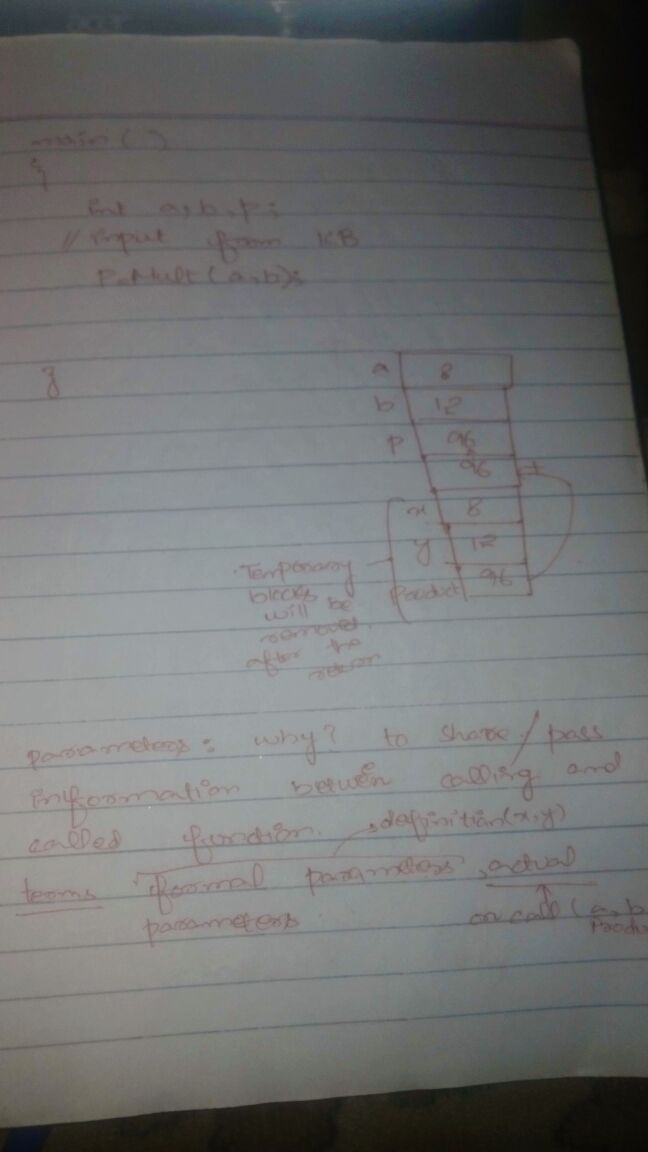 acer
main ( )
{
int a, b, p;
// input from KB
p=Mult(a,b);
}
a 8
b 12
p 96
96
x 8
y 12
Product 96
Temporary
blocks
will be
removed
after the
return
parameters: why? to share / pass
information between calling and
called function. definition(x,y)
terms formal parameters, actual
parameters on call (a, b
Produ